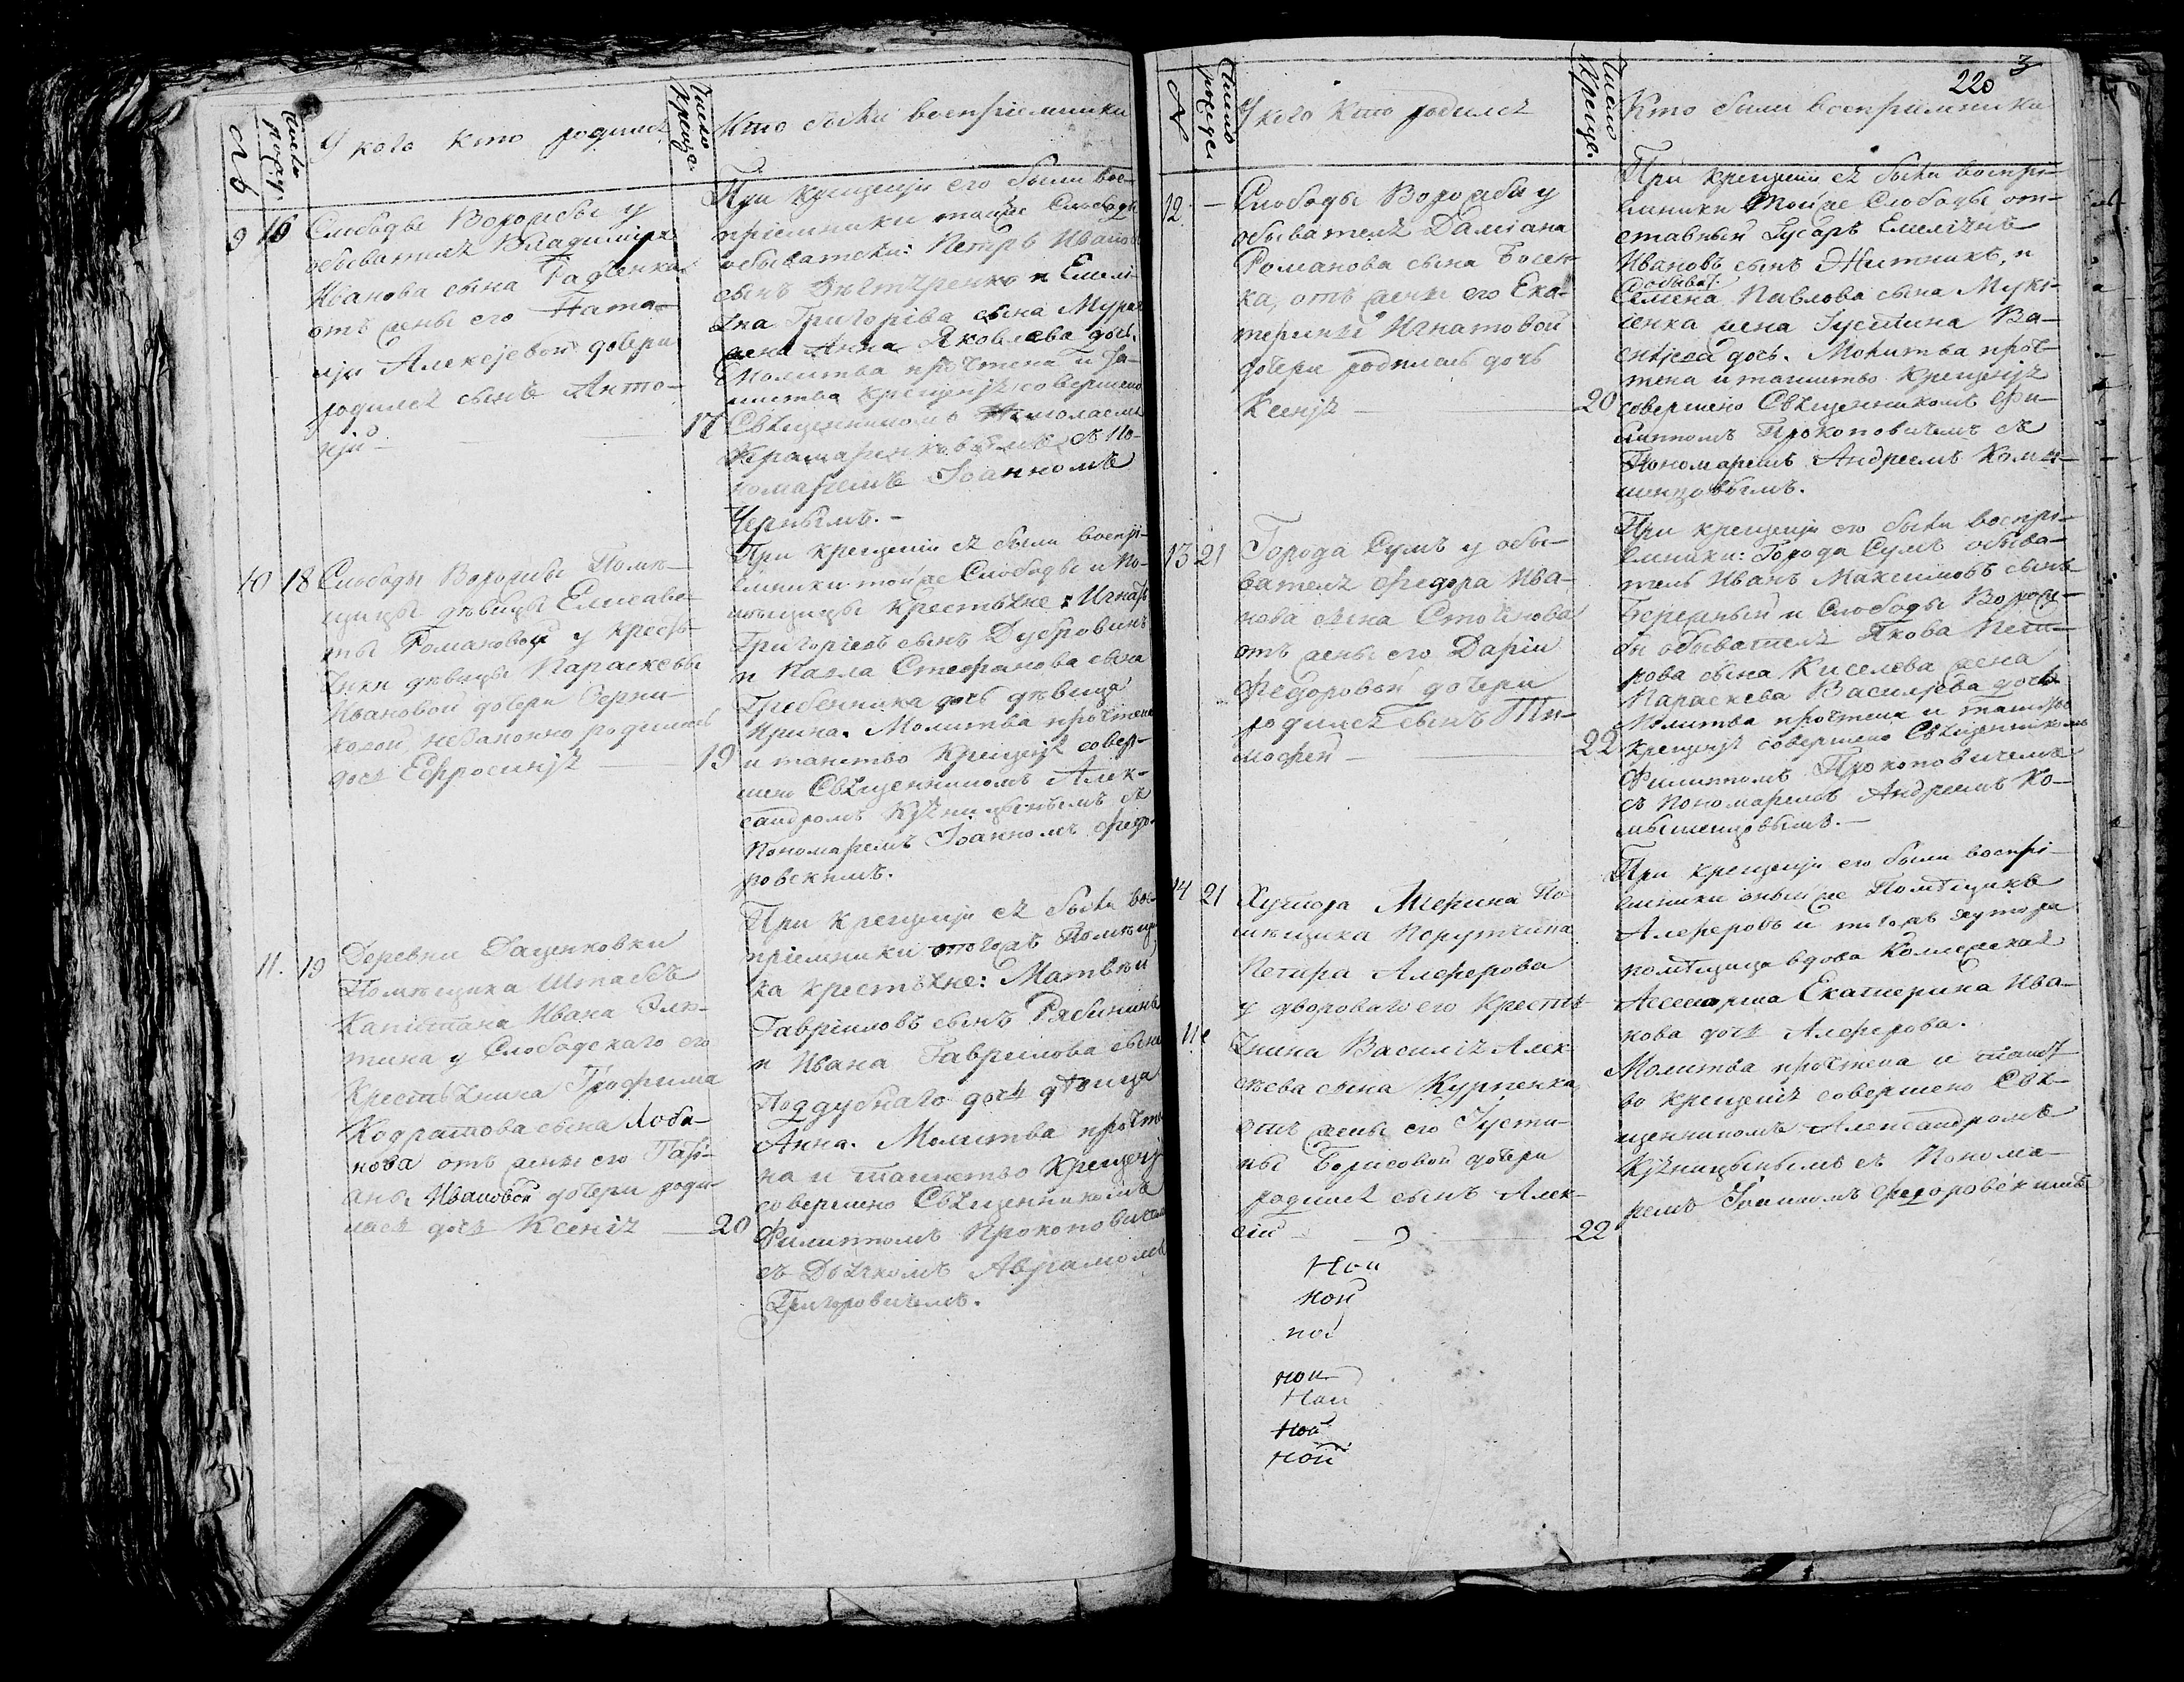 №
Число рожд.
У кого кто родился
Число крещ.
Кто были восприемники
9 16
Слободы Ворожбы у
обывателя Владимира
Иванова сына Радченка
отъ жены его Ната-
ліи Алексјевой дочери
родился сынъ Анто-
нјй
17
При крещенји его были вос-
приемники тойже Слободы
обыватели: Петръ Ивановъ
сынъ и Емелі-
яна Григорјева сына
жена Анна Яковлева дочь.
Молитва прочтена и та-
инства крещенјя совершено
Священникомъ Николаемъ
Крамаренковымъ съ По-
номаремъ Іоанномъ
Чернымъ.
10 18
Слободы Ворожбы Помѣ-
щицы дѣвицы Елисаве-
ты Романовой у крестъ-
янки дѣвицы Параскевы
Ивановой дочери
незаконно родилась
дочь Ефросинјя
19
При крещеніи ея были воспрі-
емники тойже Слободы и По-
мѣщицы Крестьяне: Игнатъ
Григоріевъ сынъ Дубровинъ
и Павла Стефанова сына
Гребенника дочь дѣвица
Ирина. Молитва прочтена
и таинство Крещенјя совер-
шено Священникомъ Алек-
сандромъ Кузницынымъ съ
Пономаремъ Іоанномъ Федо-
ровскимъ.
11. 19
Деревни Даценковки
Помѣщика Штабсъ
Капитана Ивана
у Слободскаго его
Крестьянина Трофима
Кодратова сына Лоба-
нова отъ жены его Марі-
аны Ивановой дочери роди-
лась дочь Ксенія
20
При крещенји ея были вос-
пріемники тогожъ Помѣщи-
ка крестьяне: Матвѣй
Гавриловъ сынъ Рябининъ
и Ивана Гаврилова сына
Поддубнаго дочь дѣвица
Анна. Молитва прочте-
на и таинство Крещенј
совершено Священникомъ
Филиппомъ Прокоповичемъ
съ Дьячкомъ Авраамомъ
Григоровичемъ.
220
3
№
Число рожде.
У кого кто родился
Число Креще.
Кто были восприемники
12. —
Слободы Ворожбы у
обывателя Даміана
Романова сына
ка, отъ жены его Ека-
терины Игнатовой
дочери родилась дочь
Ксенјя
20
При крещеніи ея были воспрі-
емники Тойже Слободы от-
ставный Гусаръ Емеліянъ
Ивановъ сынъ Житникъ, и
обыват.
Семена Павлова сына
жена Густина Ва-
силјева дочь. Молитва проч-
тена и таинство Крещенјя
совершено Священникомъ Фи-
липпомъ Прокоповичемъ съ
Пономаремъ Андреемъ Комы-
шенцовымъ.
13 21
Города Сумъ у обы-
вателя Федора Ива-
нова сына Стоянова
отъ жены его Даріи
Федоровой дочери
родился сынъ Ти-
мофей
22
При крещенји его были воспрі-
емники: Города Сумъ обыва-
тель Иванъ Максимовъ сынъ
Бережный и Слободы Ворож-
бы обывателя Якова Пет-
рова сына Киселева жена
Параскева Василјева дочь
Молитва прочтена и таинство
Крещенјя совершено Священникомъ
Филиппомъ Прокоповичемъ
съ Пономаремъ Андреемъ Ко-
мышенцовымъ.
14 21
Хутора Мерина По-
мѣщика Порутчика
Петра Алферова
у дворового его Крестъ-
янина Василія Алек-
сѣева сына Курпенка
отъ жены его Густи-
ны Борисовой дочери
родился сынъ Алек-
сій
22
При крещенји его были воспрі-
емники оныйже Помѣщикъ
Алферовъ и тогожъ хутора
помѣщица вдова Коллежская
Ассесорша Екатерина Ива-
нова дочь Алферова.
Молитва прочтена и таинст-
во крещенія совершено Свя-
щенникомъ Александромъ
Кузницынымъ съ Понома-
ремъ Іоанномъ Федоровскимъ
Ной
ной
ной
ной
Ной
ной
ной